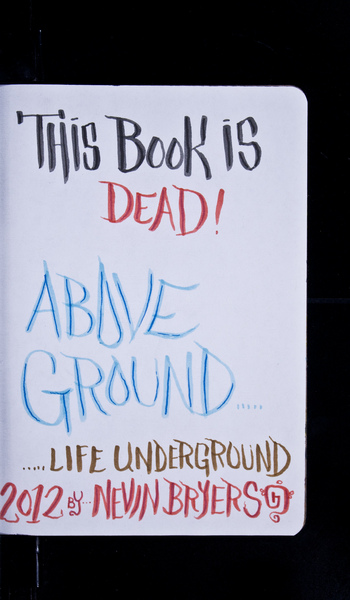 THiS BOOK iS
DEAD!
ABOVE
GROUND.....
.....LIFE UNDERGROUND
2012 BY... NEVIN BRYERS